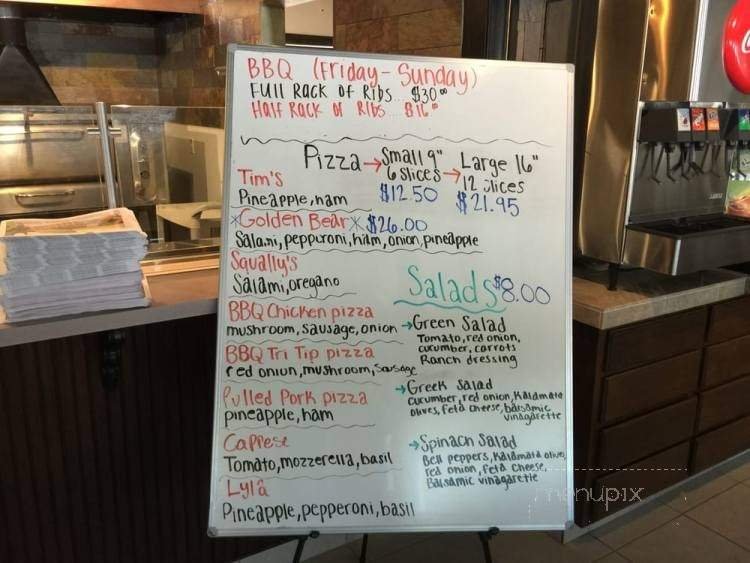 BBQ (Friday-Sunday)
Full Rack of Ribs... $30⁰⁰
Half Rack of Ribs.. $16⁰⁰
Pizza → Small 9" → Large 16"
6 slices 12 slices
$12.50 $21.95
Tim's
Pineapple, ham
*Golden Bear* $26.00
Salami, pepperoni, ham, onion, pineapple
Squally's
Salami, oregano
BBQ Chicken pizza
mushroom, sausage, onion
BBQ Tri Tip pizza
red onion, mushroom, sausage
Pulled Pork pizza
pineapple, ham
Caprese
Tomato, mozzerella, basil
Lyla
Pineapple, pepperoni, basil
Salads $8.00
→ Green Salad
Tomato, red onion,
cucumber, carrots
Ranch dressing
→ Greek Salad
cucumber, red onion, Kalamata
olives, feta cheese, balsamic
vinagarette
→ Spinach Salad
Bell peppers, Kalamata olives,
red onion, feta cheese,
Balsamic vinagarette
menupix